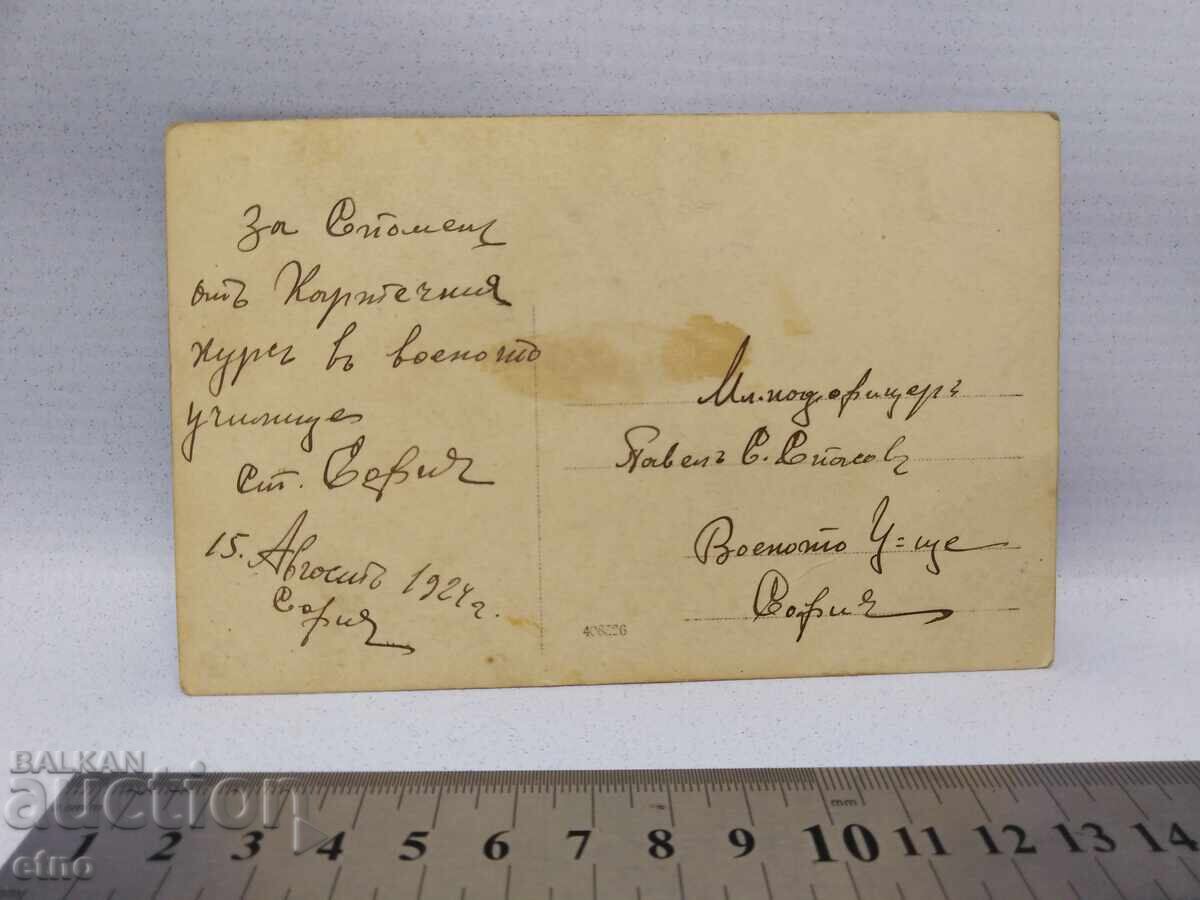 За Спомен
отъ Картечния
курсъ в военото
училище
ст. София
15. Августъ 1924 г.
София
Мл. подофицеръ
Павелъ С. Спасовъ
Военото У-ще
София
BALKAN
auction
etno
mm
1 2 3 4 5 6 7 8 9 10 11 12 13 14